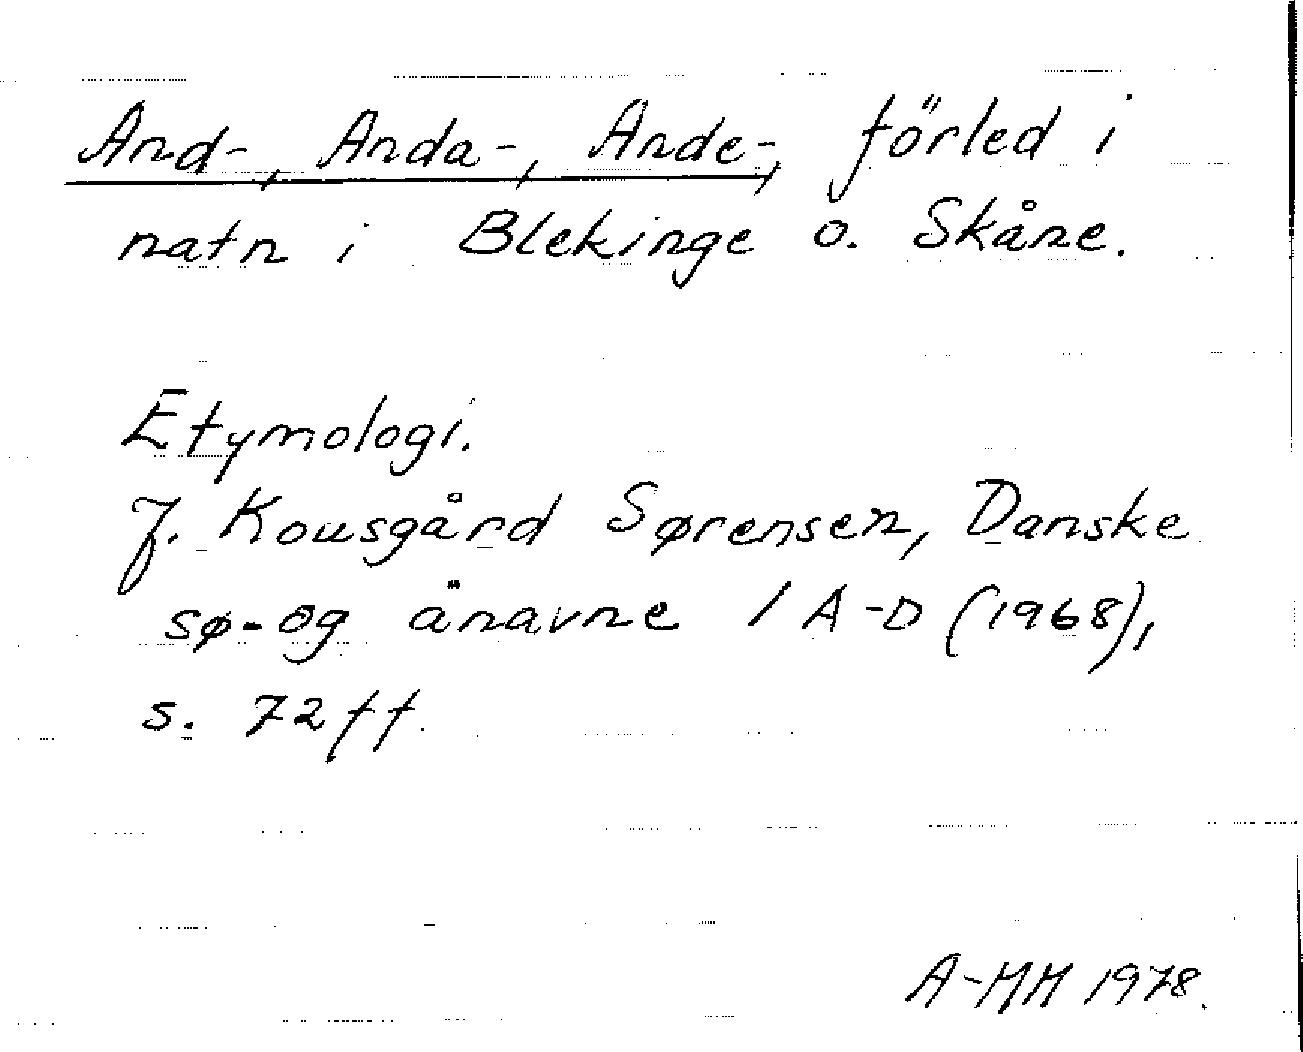 And-, Anda-, Ande-, förled i
natn i Blekinge o. Skåne.
Etymologi.
J. Kousgård Sørensen, Danske
sø- og ånavne 1 A-D (1968),
s. 72 ff.
A-MH 1978.